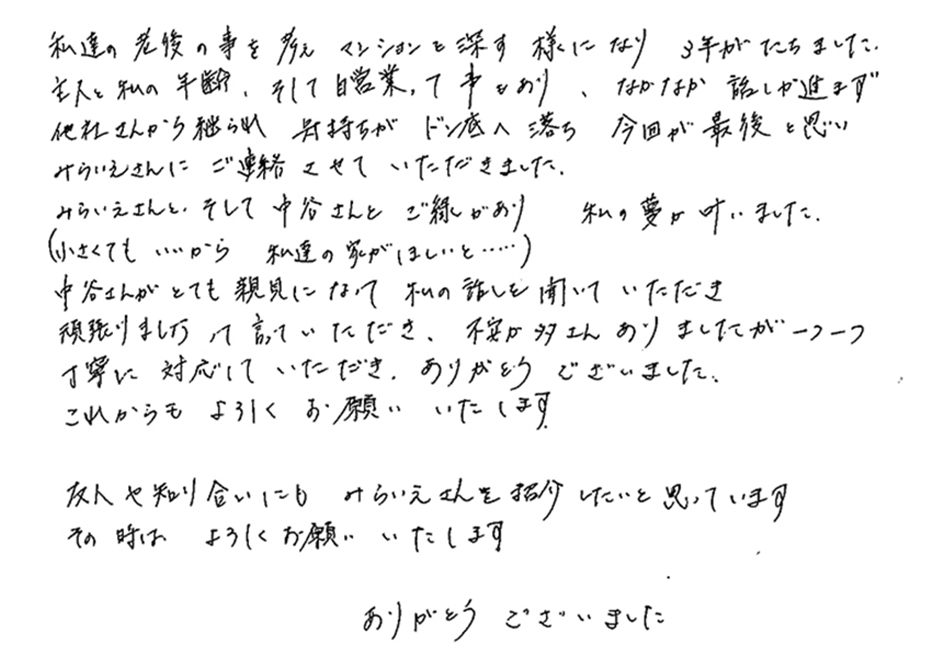 私達の老後の事を考え マンションを深す 様になり 3年がたちました.
主人と私の年齢、そして自営業って事もあり、なかなか 話しが進まず
他社さんから断られ 気持ちが ドン底へ落ち 今回が最後と思い
みらいえさんに ご連絡させて いただきました.
みらいえさんと、そして 中谷さんと ご縁があり 私の夢が叶いました.
(小さくても いいから 私達の家がほしいと……)
中谷さんがとても親見になって 私の話しを聞いていただき
頑張りましょうって言っていただき、不安が多さんありましたが一つ一つ
丁寧に対応していただき. ありがとう ございました.
これからも よろしく お願い いたします.
友人や知り合いにも みらいえさんを紹介したいと思っています
その時は よろしくお願い いたします
ありがとう ございました